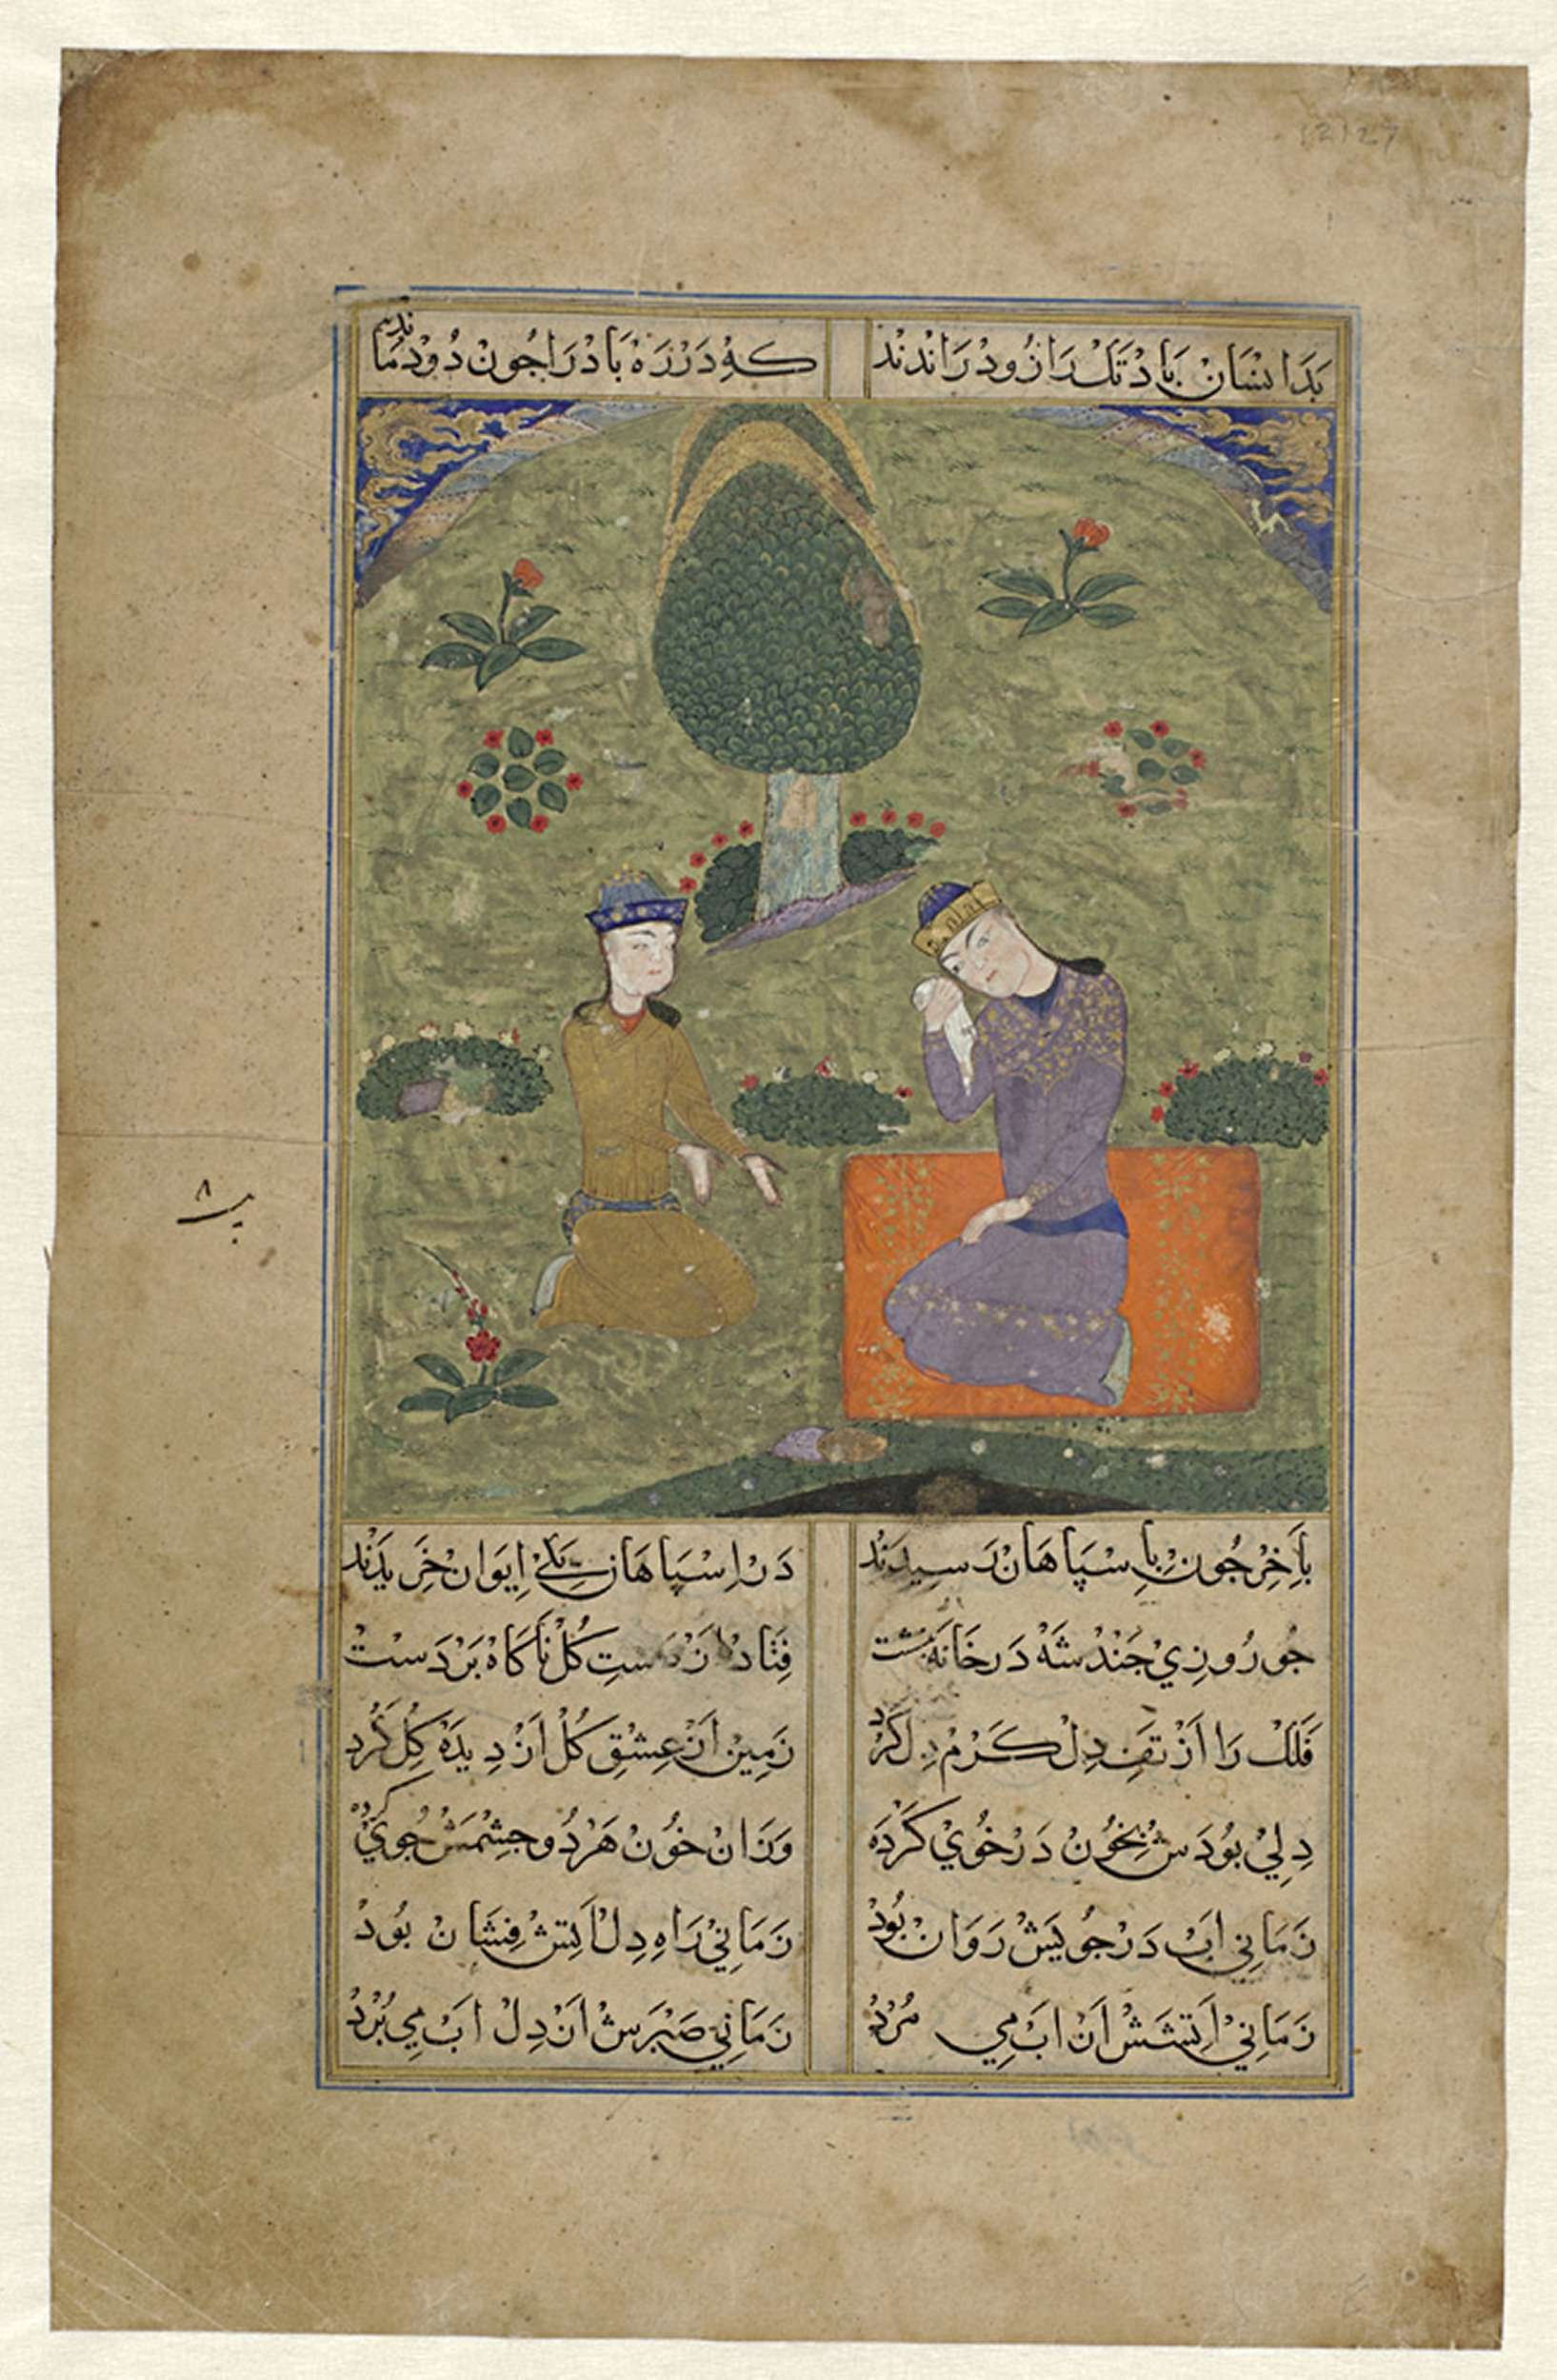 12127
بَدَانسَانْ بَادْتَكْ رَازُودْ رَانْدَنْدْ
كِهْ دَرْ رَهْ بَادْ رَا چُونْ دُودْ مَانْدَنْدْ
بآخِرْ جُونْ بِاِسْپَاهَانْ رَسِيدَنْدْ
دَرْ اِسْپَاهَانْ يَكيْ اِيوَانْ خَرِيدَنْدْ
جُو رُوزِيْ جَنْدْ شَهْ دَرْ خَانَه بنشست
فِتَادَشْ زَدست كُلْ نَاكَاهْ بَرْ دَسْتْ
فَلَكْ رَا اَزْ تَفِ دِلْ كَرْمْ دِلْ كَرْدْ
زَمِينْ اَزْ عِشْقِ كُلْ اَزْ دِيدَهْ كِلْ كَرْدْ
دِلِيْ بُودَشْ بخُونْ دَرْ خُويْ كَرْدَه
وَزَانْ خُونْ هَرْدُو جِشْمَشْ جُويْ كرده
زَمَانِيْ ابْ دَرْ جُويَشْ رَوَانْ بُودْ
زَمَانِيْ رَاهِ دِلْ اَتِشْ فِشَانْ بُودْ
زَمَانِيْ اَتِشَشْ اَزْ ابْ مِي مُرْدْ
زَمَانِيْ صَبْرَشْ اَزْ دِلْ ابْ مِي بُرْدْ
٨